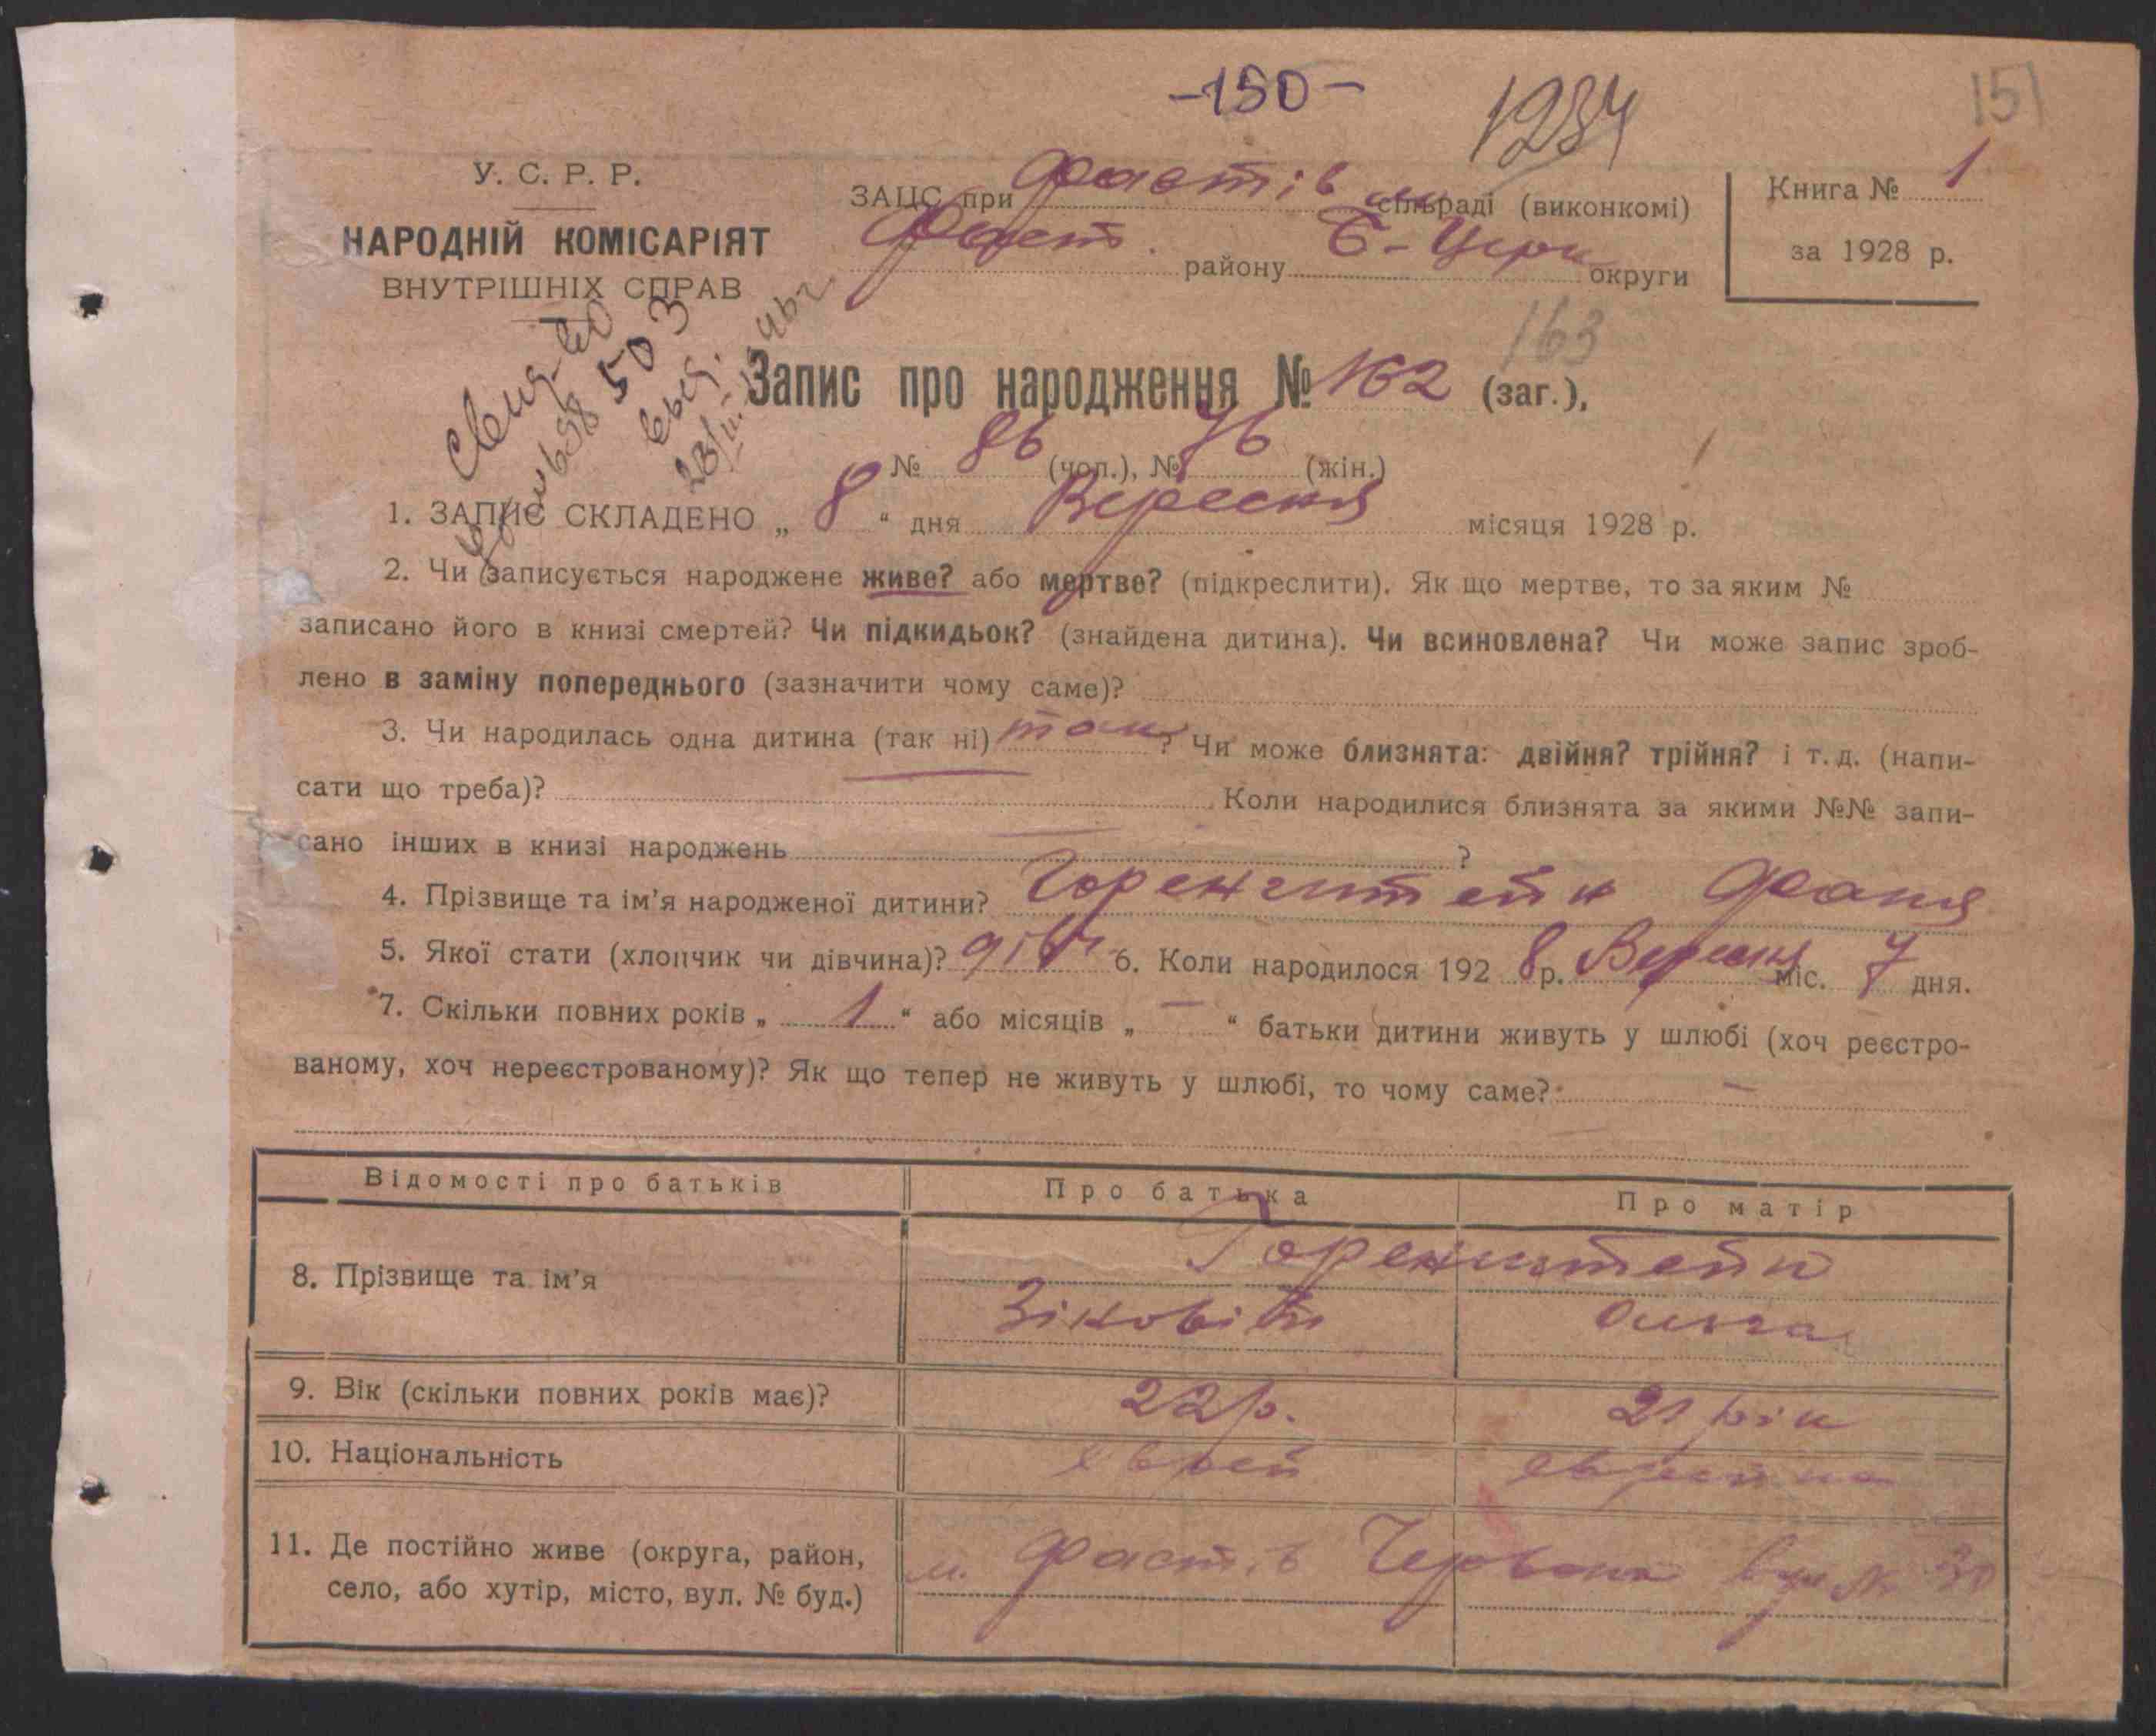 -150-
1234
151
У. С. Р. Р.
НАРОДНІЙ КОМІСАРІЯТ
ВНУТРІШНІХ СПРАВ
ЗАЦС при Фастів сільраді (виконкомі)
Фаст. району Б-Церк округи
Книга № 1
за 1928 р.
163
Запис про народження № 162 (заг.),
№ 86 (чол.), № 76 (жін.)
1. ЗАПИС СКЛАДЕНО „ 8 “ дня Вересня місяця 1928 р.
2. Чи записується народжене живе? або мертве? (підкреслити). Як що мертве, то за яким №
записано його в книзі смертей? Чи підкидьок? (знайдена дитина). Чи всиновлена? Чи може запис зроб-
лено в заміну попереднього (зазначити чому саме)?
3. Чи народилась одна дитина (так ні) так ? Чи може близнята: двійня? трійня? і т. д. (напи-
сати що треба)? Коли народилися близнята за якими №№ запи-
сано інших в книзі народжень ?
4. Прізвище та ім’я народженої дитини? Горенштейн Фаня
5. Якої стати (хлопчик чи дівчина)? дівч 6. Коли народилося 192 8 р. Вересня міс. 7 дня.
7. Скільки повних років „ 1 “ або місяців „ — “ батьки дитини живуть у шлюбі (хоч реєстро-
ваному, хоч нереєстрованому)? Як що тепер не живуть у шлюбі, то чому саме? —
Відомості про батьків Про батька Про матір
8. Прізвище та ім’я Горенштейн
Зіновій Ольга
9. Вік (скільки повних років має)? 22 р. 21 рік
10. Національність еврей еврейка
11. Де постійно живе (округа, район,
село, або хутір, місто, вул. № буд.)
м. Фастів Червона вул № 30